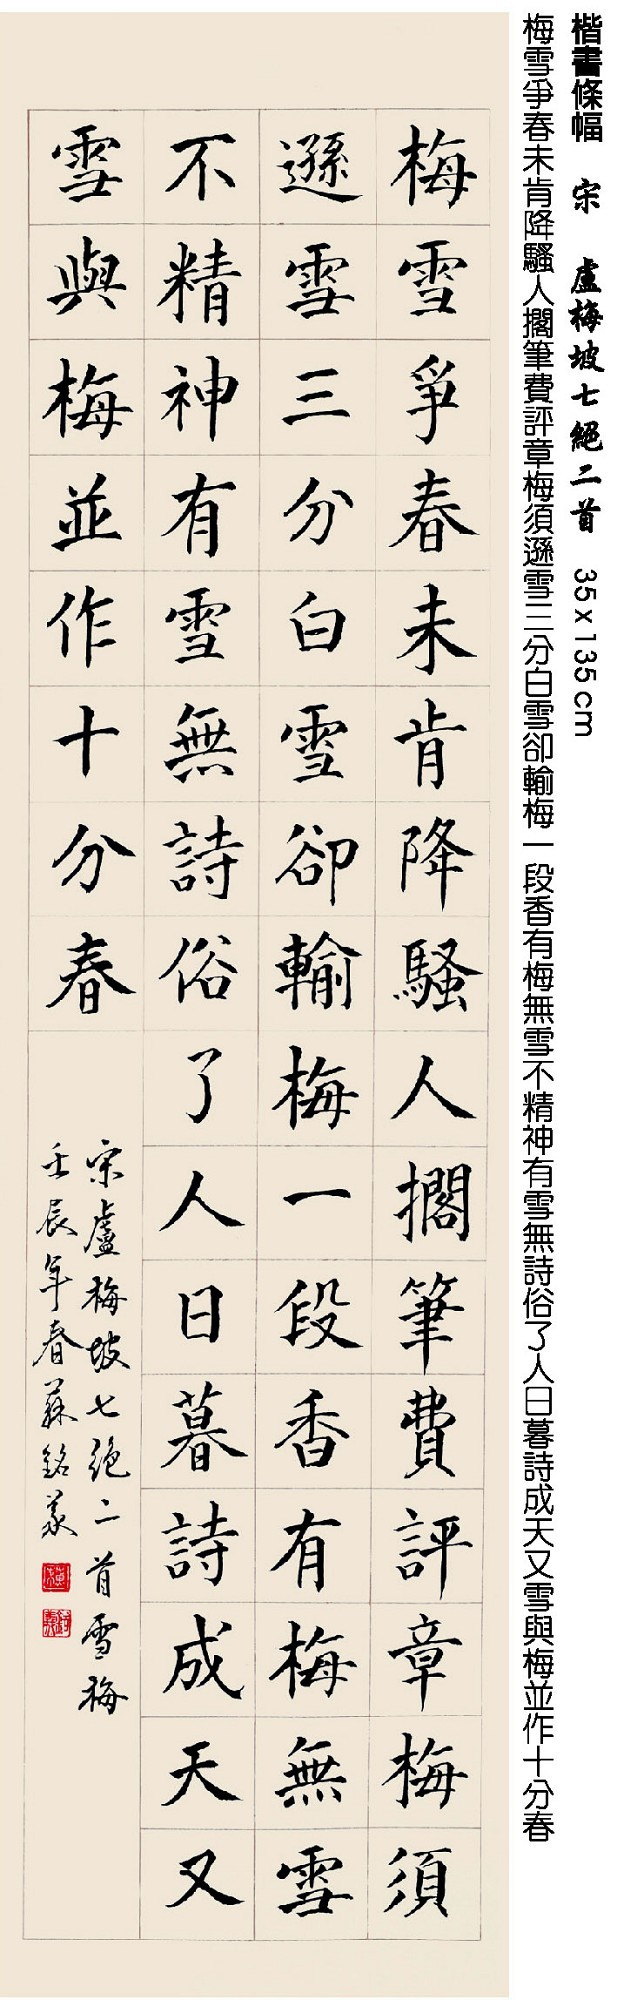 楷書條幅　宋　盧梅坡七絕二首　35x135cm
梅雪爭春未肯降騷人擱筆費評章梅須遜雪三分白雪卻輸梅一段香有梅無雪不精神有雪無詩俗了人日暮詩成天又雪與梅並作十分春
梅雪爭春未肯降騷人擱筆費評章梅須
遜雪三分白雪卻輸梅一段香有梅無雪
不精神有雪無詩俗了人日暮詩成天又
雪與梅並作十分春
宋盧梅坡七絕二首雪梅
壬辰年春蘇銘義